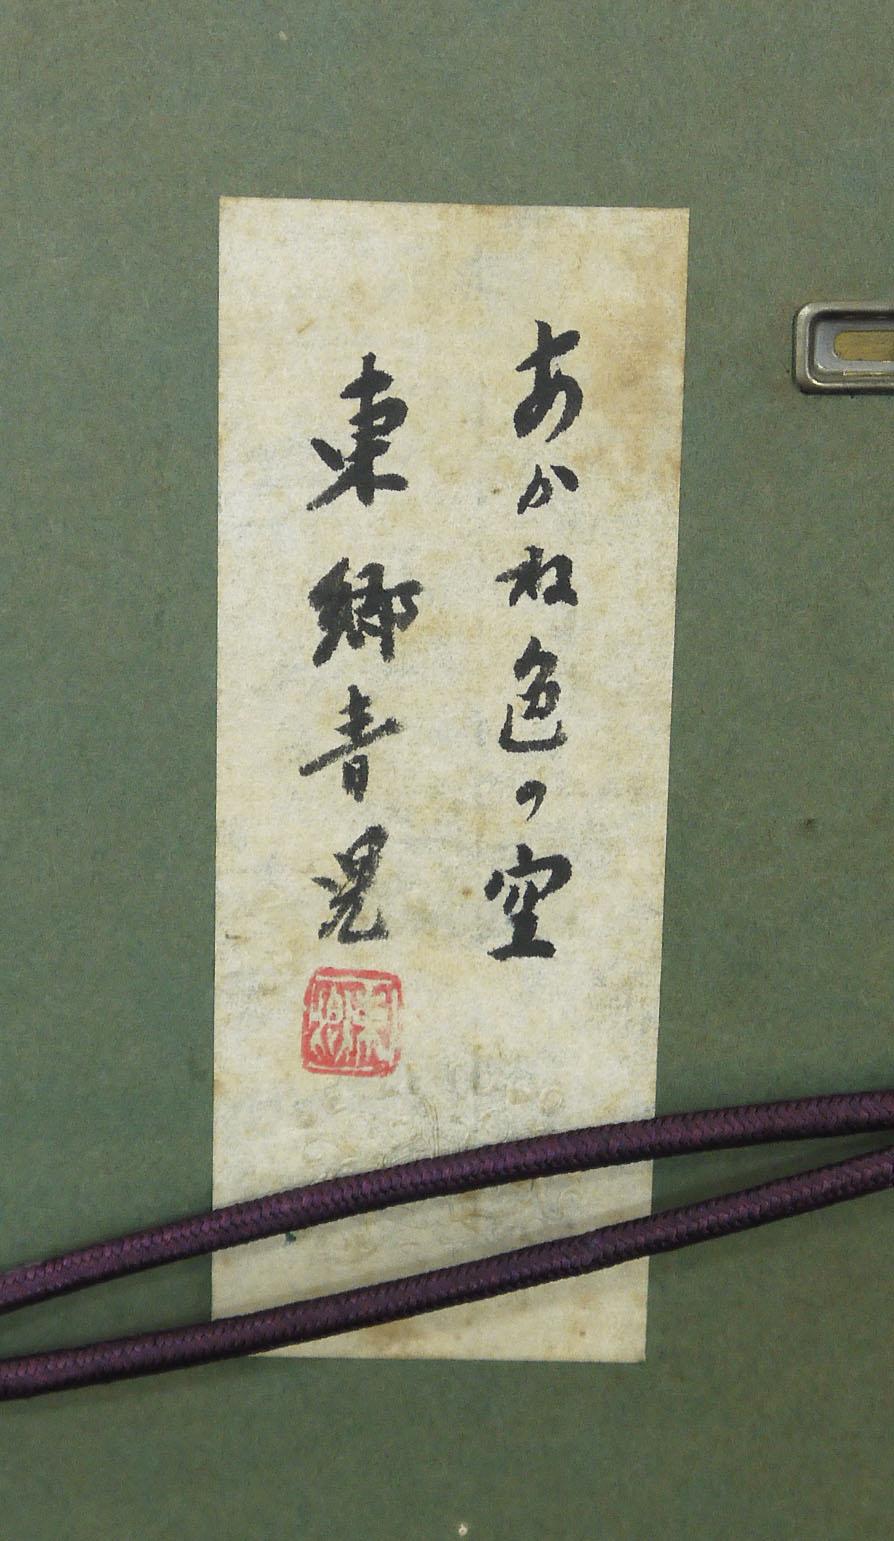 あかね色の空
東郷青児